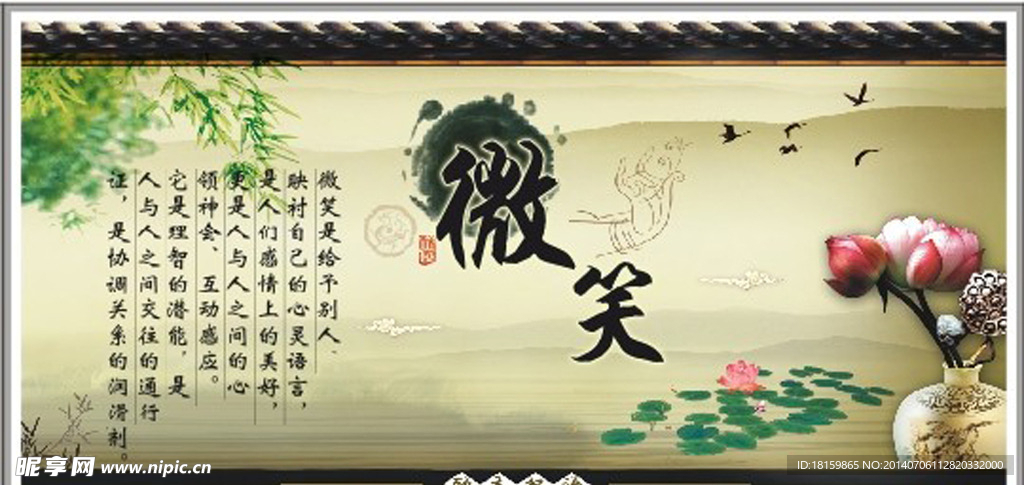 微笑
微笑是给予别人、
映衬自己的心灵语言，
是人们感情上的美好，
更是人与人之间的心
领神会、互动感应。
它是理智的潜能，是
人与人之间交往的通行
证，是协调关系的润滑剂。
昵享网 www.nipic.cn
ID:18159865 NO:20140706112820332000